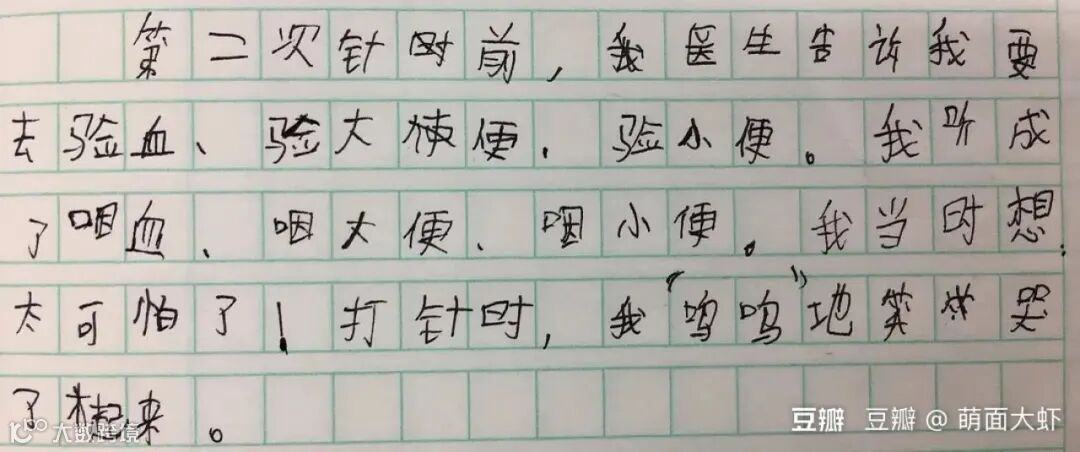 第二次针时前，我医生告诉我要
去验血、验大便、验小便。我听成
了咽血、咽大便、咽小便。我当时想，
太可怕了！打针时，我“呜呜”地哭
了起来。
大数跨境
豆瓣 豆瓣@萌面大虾